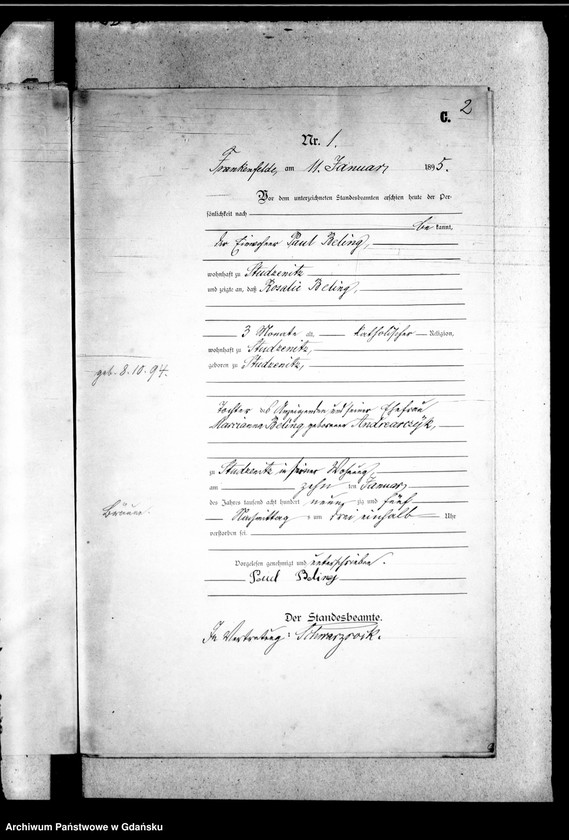 C. 2
Nr. 1.
Frankenfelde, am 11. Januar 1895.
Vor dem unterzeichneten Standesbeamten erschien heute der Per-
sönlichkeit nach
be kannt,
der Einwohner Paul Beling,
wohnhaft zu Studzenitz
und zeigte an, daß Rosalie Beling,
3 Monate alt, katholischer Religion,
wohnhaft zu Studzenitz,
geboren zu Studzenitz,
geb. 8.10.94.
Tochter des Anzeigenden und seiner Ehefrau
Marcianna Beling, geborenen
zu Studzenitz in seiner Wohnung,
am zehn ten Januar
des Jahres tausend acht hundert neun zig und fünf
Nachmittag s um drei einhalb Uhr
verstorben sei.
Vorgelesen, genehmigt und unterschrieben.
Paul Beling
Der Standesbeamte.
In Vertretung:
Archiwum Państwowe w Gdańsku